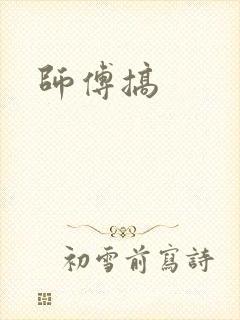 師傅搞
初雪前寫詩